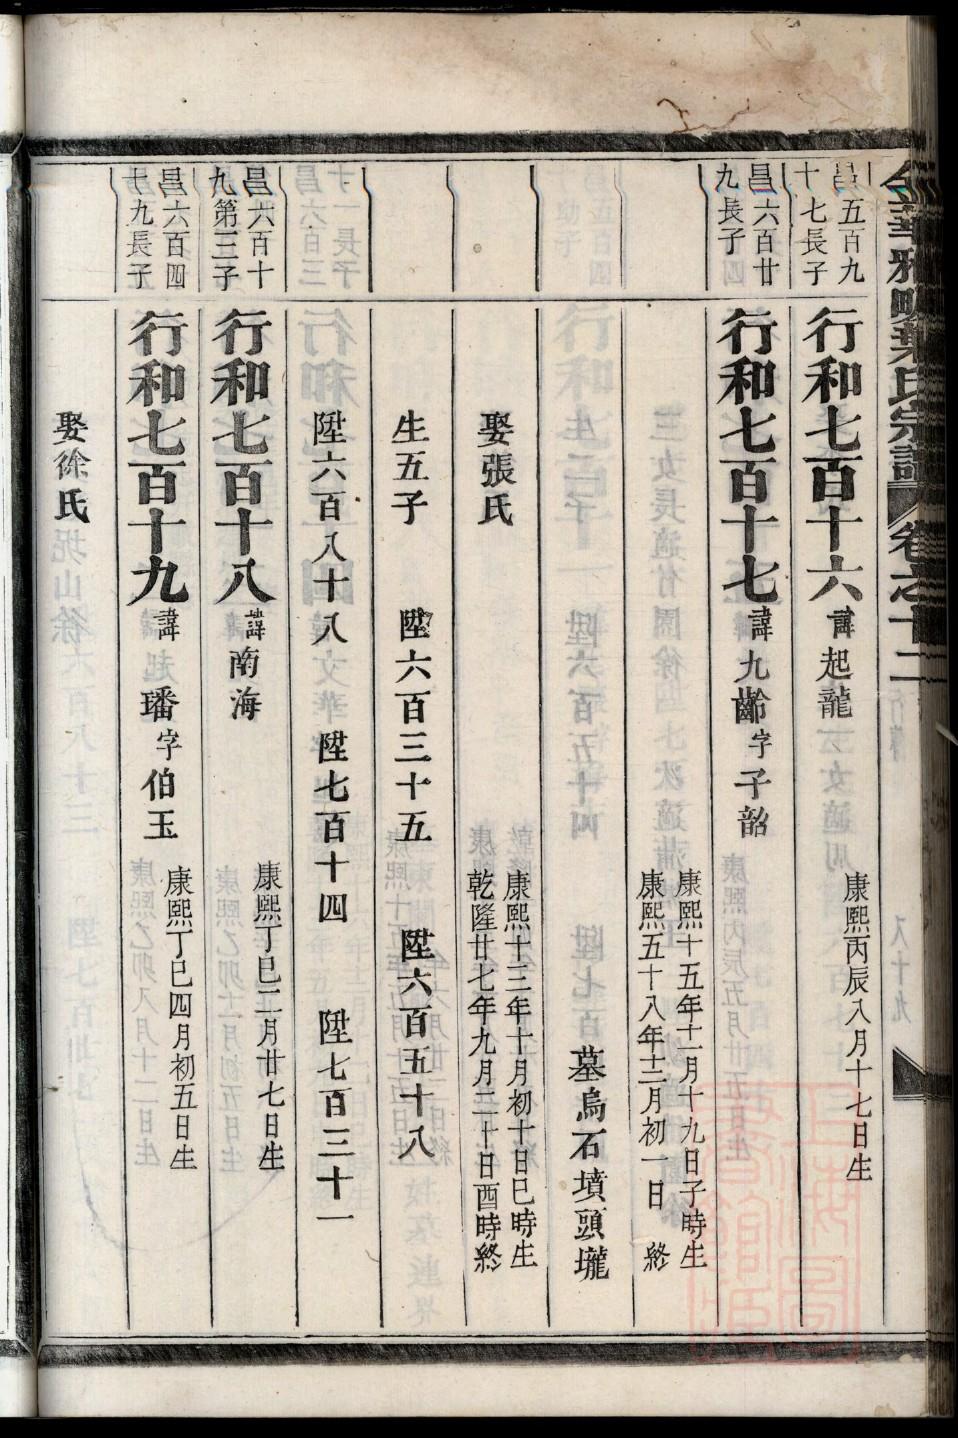 金華雅畈葉氏宗譜 卷之十二
昌五百九
十七長子
行和七百十六 諱起龍
康熙丙辰八月十七日生
昌六百廿
九長子
行和七百十七 諱九齡字子韶
康熙十五年十一月十九日子時生
康熙五十八年十二月初一日 終
墓烏石墳頭壠
娶張氏
康熙十三年十月初十日巳時生
乾隆廿七年九月二十日酉時終
生五子 陞六百三十五 陞六百五十八
陞六百八十八 陞七百十四 陞七百三十一
昌六百十
九第三子
行和七百十八 諱南海
康熙丁巳二月廿七日生
昌六百四
十九長子
行和七百十九 諱璠字伯玉
康熙丁巳四月初五日生
娶徐氏